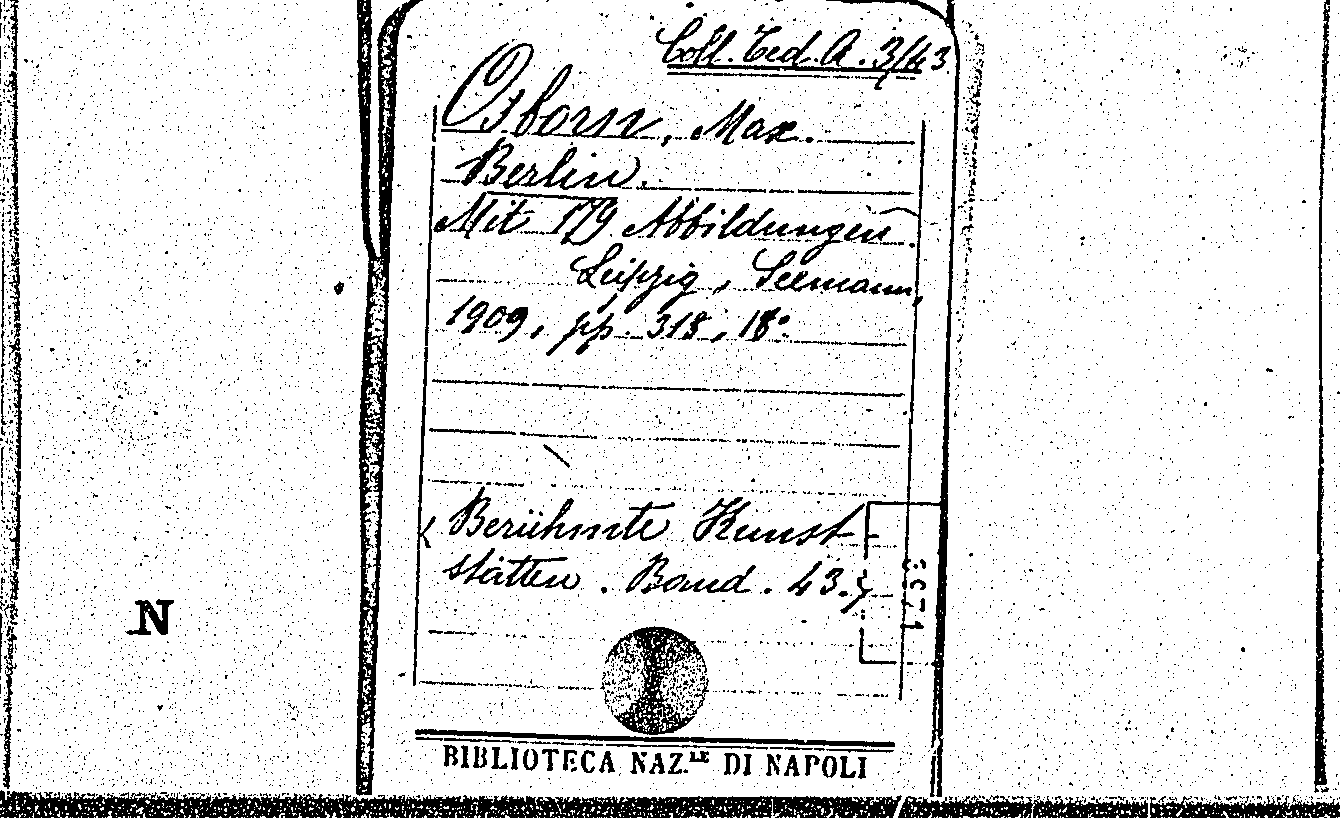 Coll. Ted. A. 3/43
Osborn, Max.
Berlin.
Mit 179 Abbildungen.
Leipzig, Seemann,
1909, pp. 318, 18°.
(Berühmte Kunst-
stätten. Band. 43.)
N
BIBLIOTECA NAZ.LE DI NAPOLI